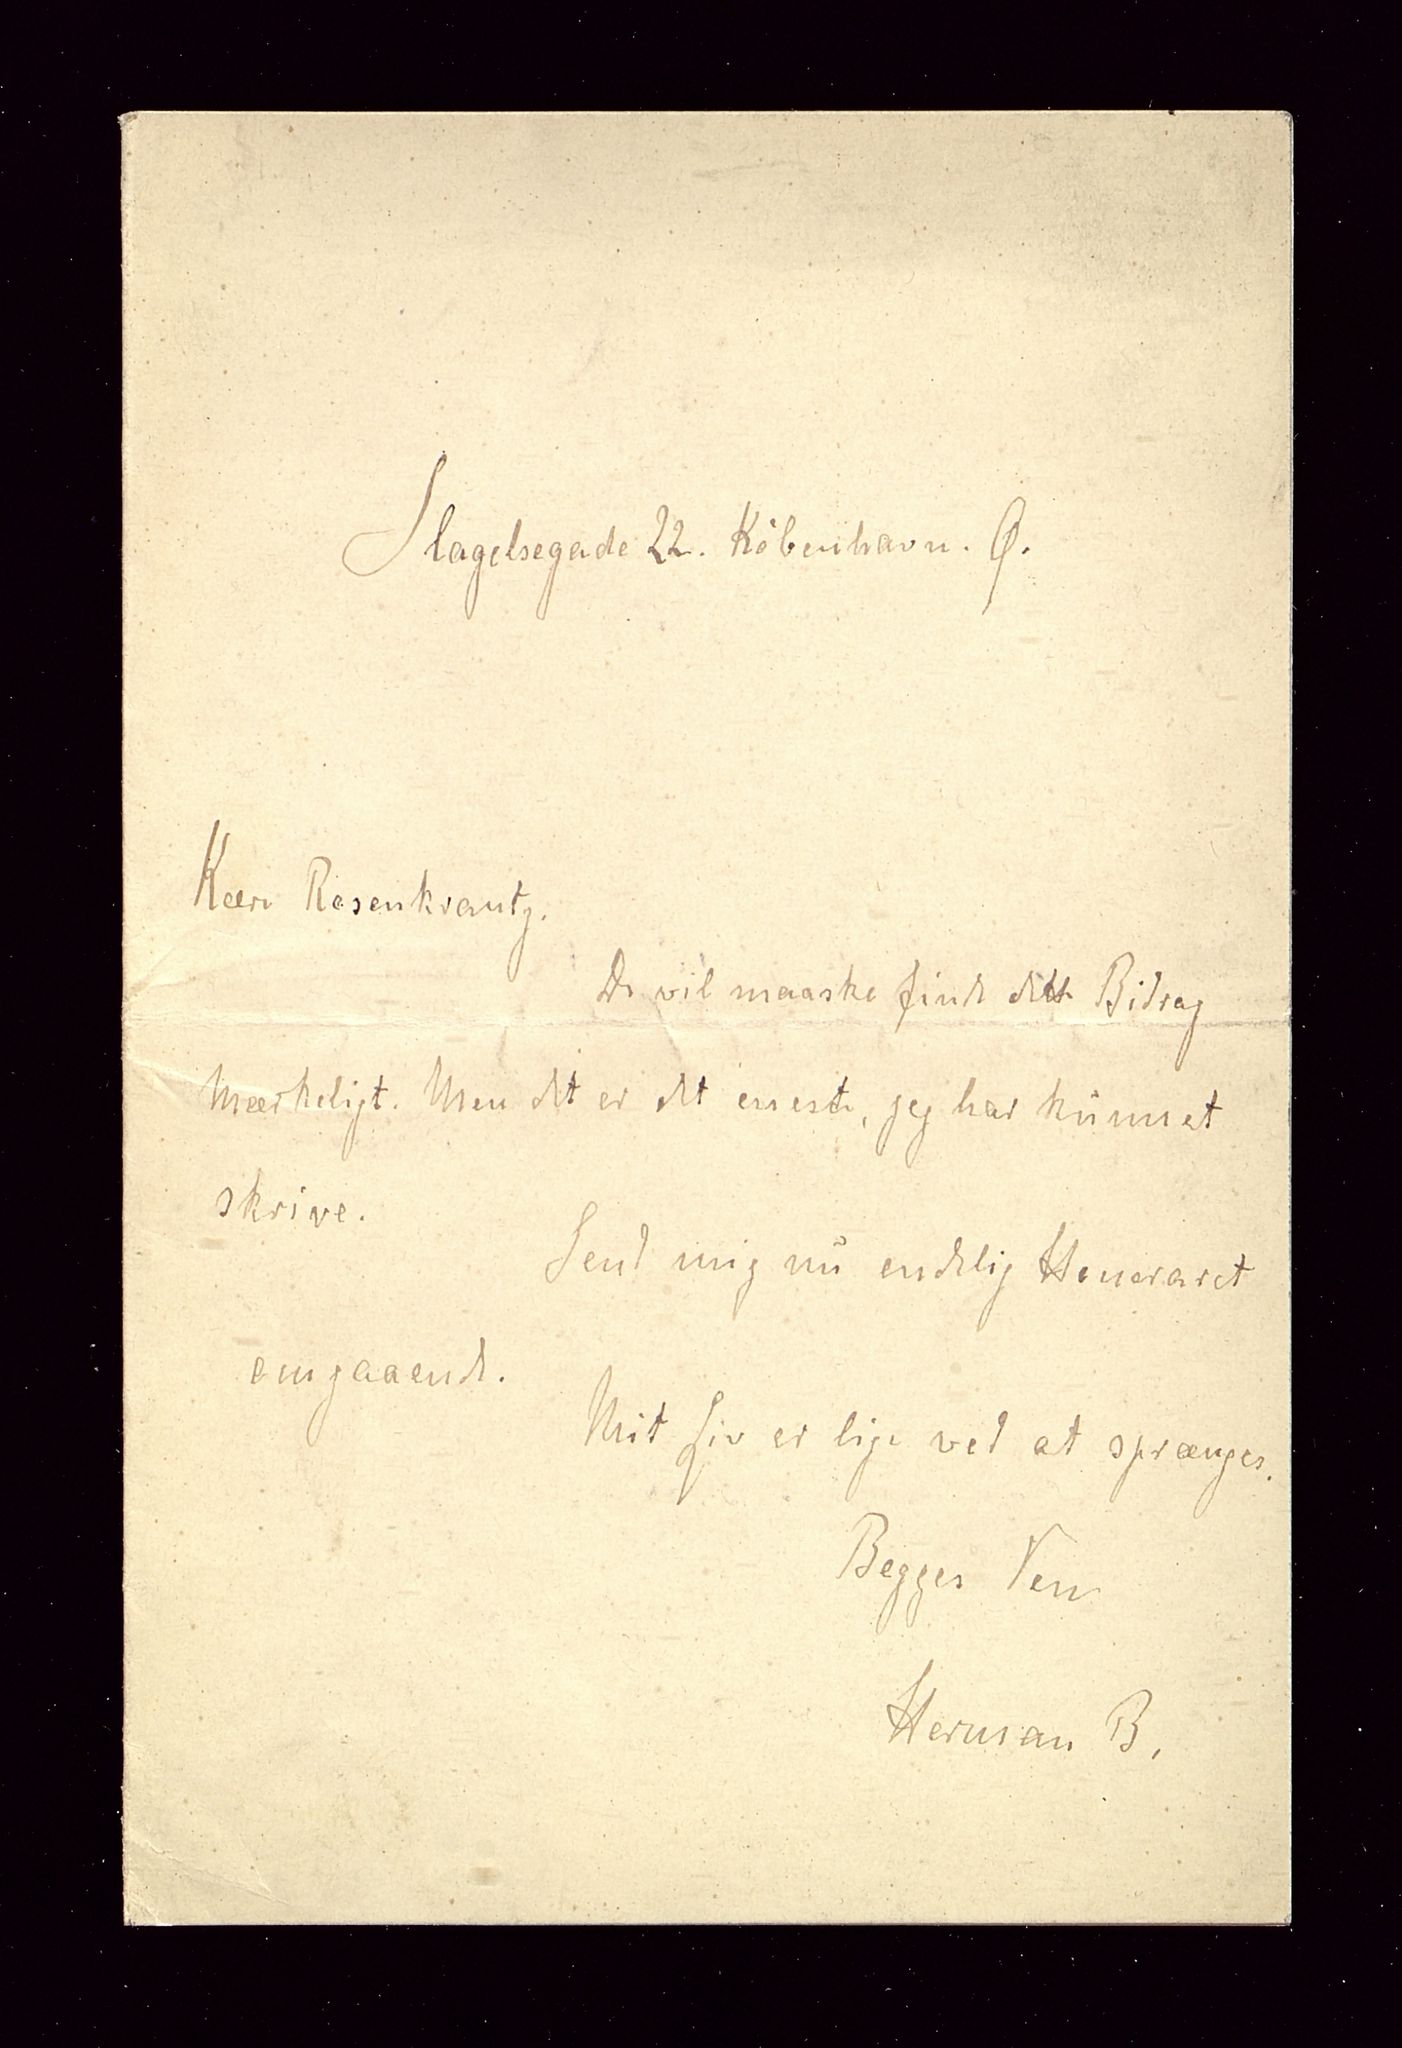 Slagelsegade 22. København. Ø.
Kære Rosenkrantz.
De vil maaske finde dette Bidrag
mærkeligt. Men det er det eneste, jeg har kunnet
skrive.
Send mig nu endelig Honoraret
omgaaende.
Mit Liv er lige ved at sprænges.
Begges Ven
Herman B.